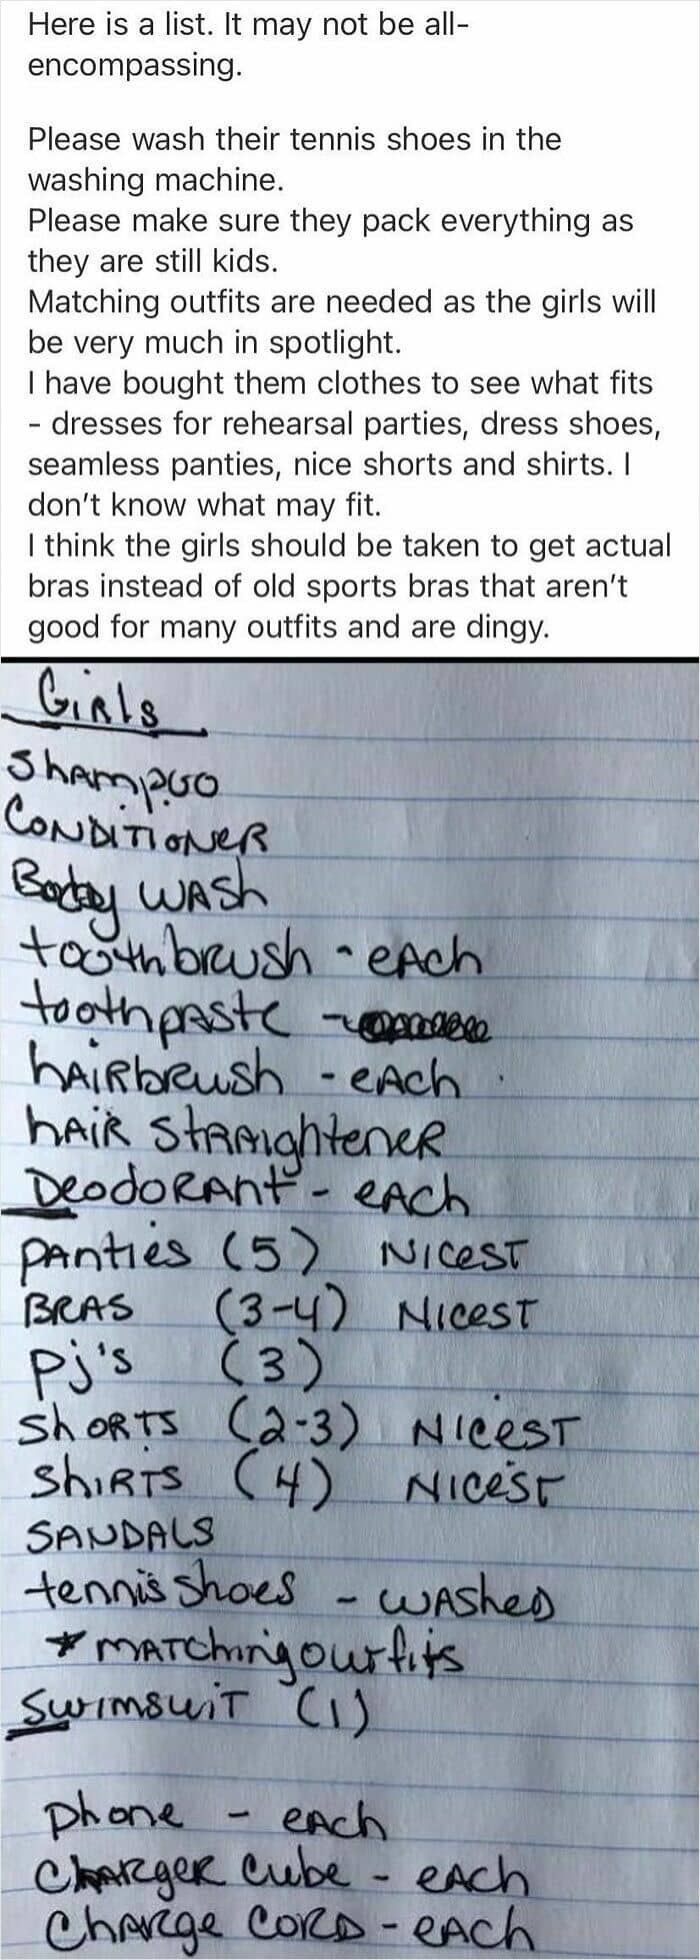 Here is a list. It may not be all-
encompassing.
Please wash their tennis shoes in the
washing machine.
Please make sure they pack everything as
they are still kids.
Matching outfits are needed as the girls will
be very much in spotlight.
I have bought them clothes to see what fits
- dresses for rehearsal parties, dress shoes,
seamless panties, nice shorts and shirts. I
don't know what may fit.
I think the girls should be taken to get actual
bras instead of old sports bras that aren't
good for many outfits and are dingy.
Girls
Shampoo
Conditioner
Body wash
toothbrush - each
toothpaste -
hairbrush - each
hair straightener
Deodorant - each
panties (5) Nicest
BRAS (3-4) Nicest
Pj's (3)
shorts (2-3) Nicest
shirts (4) Nicest
SANDALS
tennis shoes - washed
* matching outfits
Swimsuit (1)
phone - each
Charger cube - each
Charge cord - each